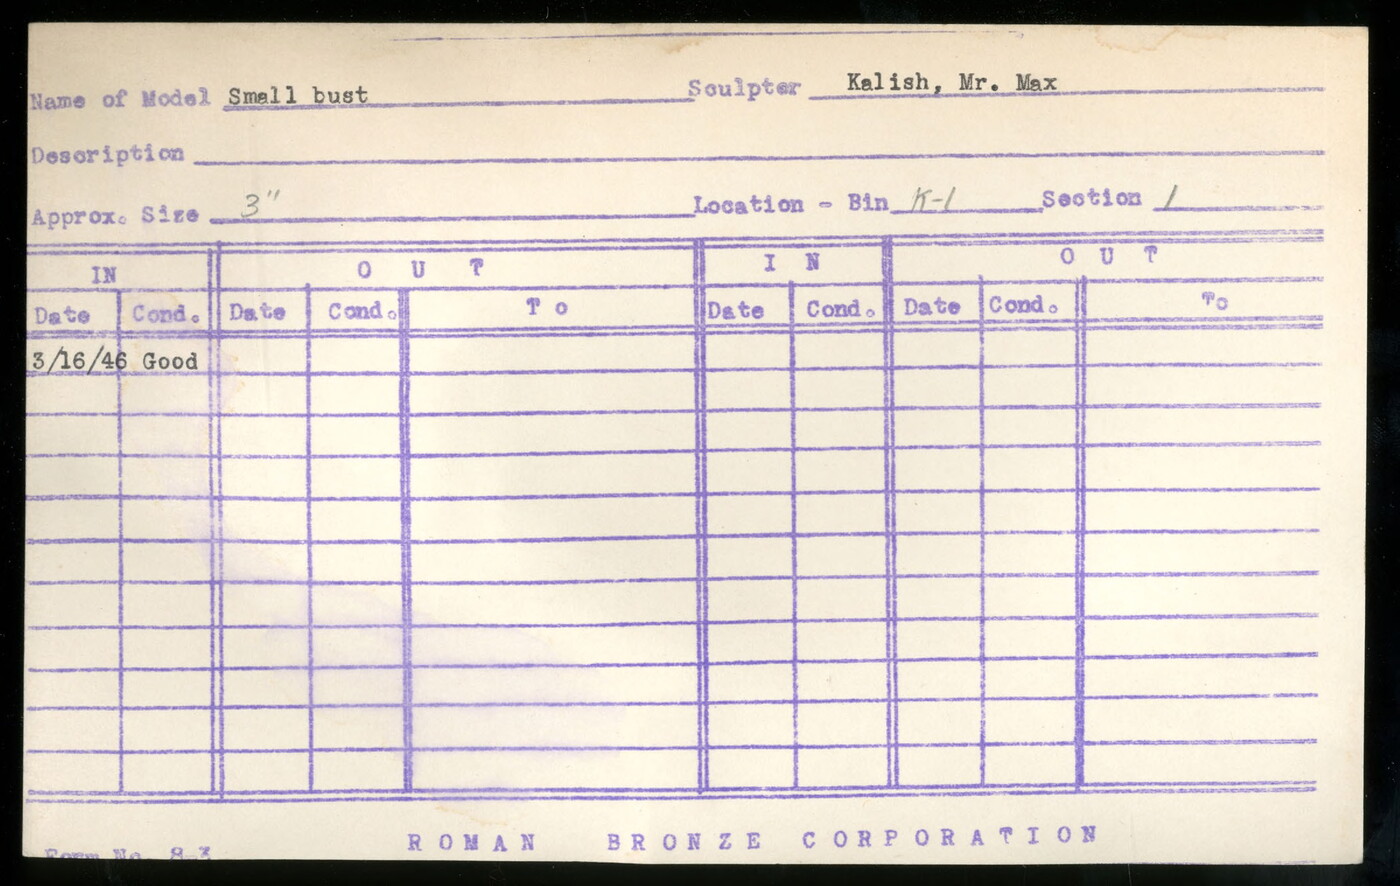 Name of Model Small bust Sculpter Kalish, Mr. Max
Description
Approx. Size 3" Location - Bin K-1 Section 1
IN OUT IN OUT
Date Cond. Date Cond. To Date Cond. Date Cond. To
3/16/46 Good
ROMAN BRONZE CORPORATION
Form No. 8-3